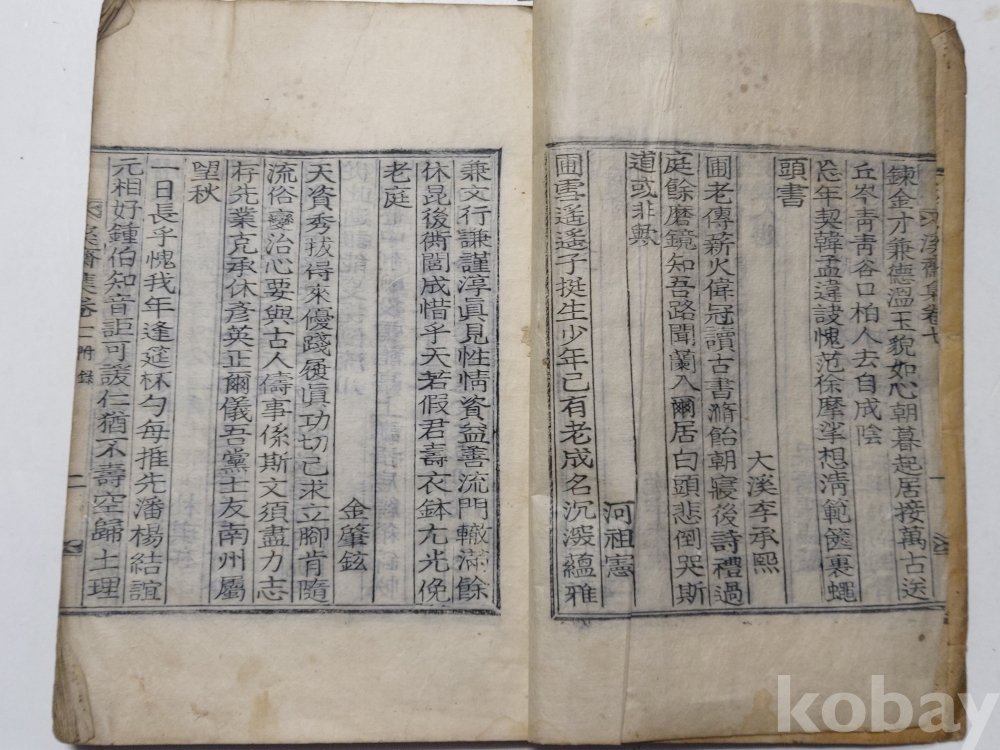 鍊金才兼德溫玉貌如心朝暮起居接萬古送
丘岑靑靑谷口柏人去自成陰
忘年契韓孟違詖愧范徐摩挲想淸範篋裹蠅
頭書
大溪李承熙
圃老傳薪火偉冠讀古書滫飴朝寢後詩禮過
庭餘磨鏡知吾路聞蘭入爾居白頭悲倒哭斯
道或非歟
河祖憲
圃雲遙遙子挺生少年已有老成名沉湥蘊雅
兼文行謙謹淳眞見性情資益善流門轍滿餘
休昆後衖閭成惜乎天若假君壽衣鉢尢光俛
老庭
金肇鉉
天資秀拔得來優踐履眞功切己求立腳肯隨
流俗變治心要與古人儔事係斯文須盡力志
存先業克承休彥英正爾儀吾黨士友南州屬
望秋
一日長乎愧我年逢筵杯勺每推先潘楊結誼
元相好鍾伯知音詎可諼仁猶不壽空歸土理
溪齋集卷二 附錄
一
kobay